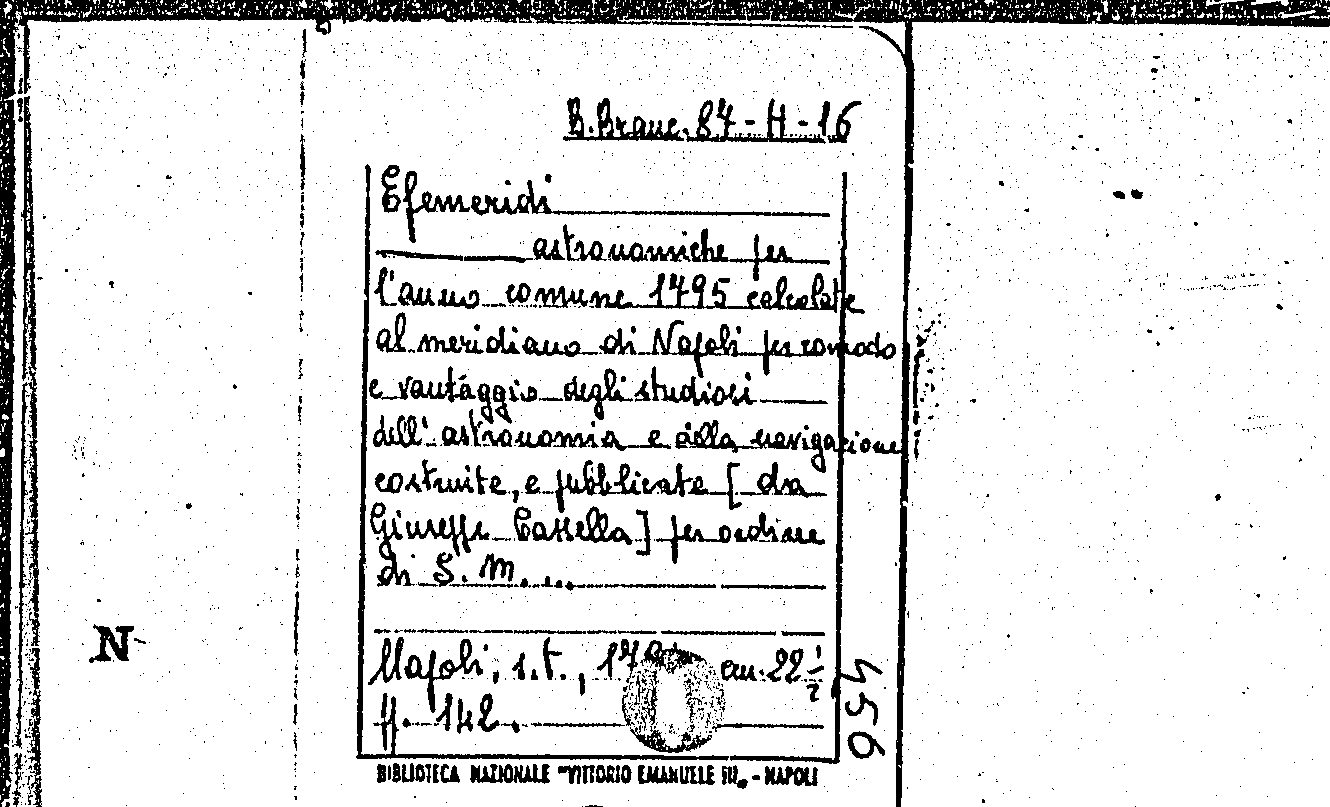 B.Branc.87-H-16
Efemeridi
astronomiche per
l'anno comune 1795 calcolate
al meridiano di Napoli per comodo
e vantaggio degli studiosi
dell'astronomia e della navigazione
costruite, e pubblicate [da
Giuseppe Cassella] per ordine
di S. M. ...
Napoli, s.t., cm. 22 1/2
ff. 142.
456
N
BIBLIOTECA NAZIONALE "VITTORIO EMANUELE III„ - NAPOLI